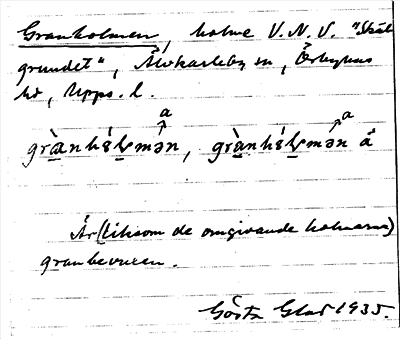 Granholmen, holme V.N.V. "Skat
grundet", Älvkarleby sn, Örbyhus
hd, Upps. l.
a a
grànhɛ́ɭmən, grànhɛ́ɭmən å
Är (liksom de omgivande holmarna)
granbevuxen.
Gösta Glad 1935.